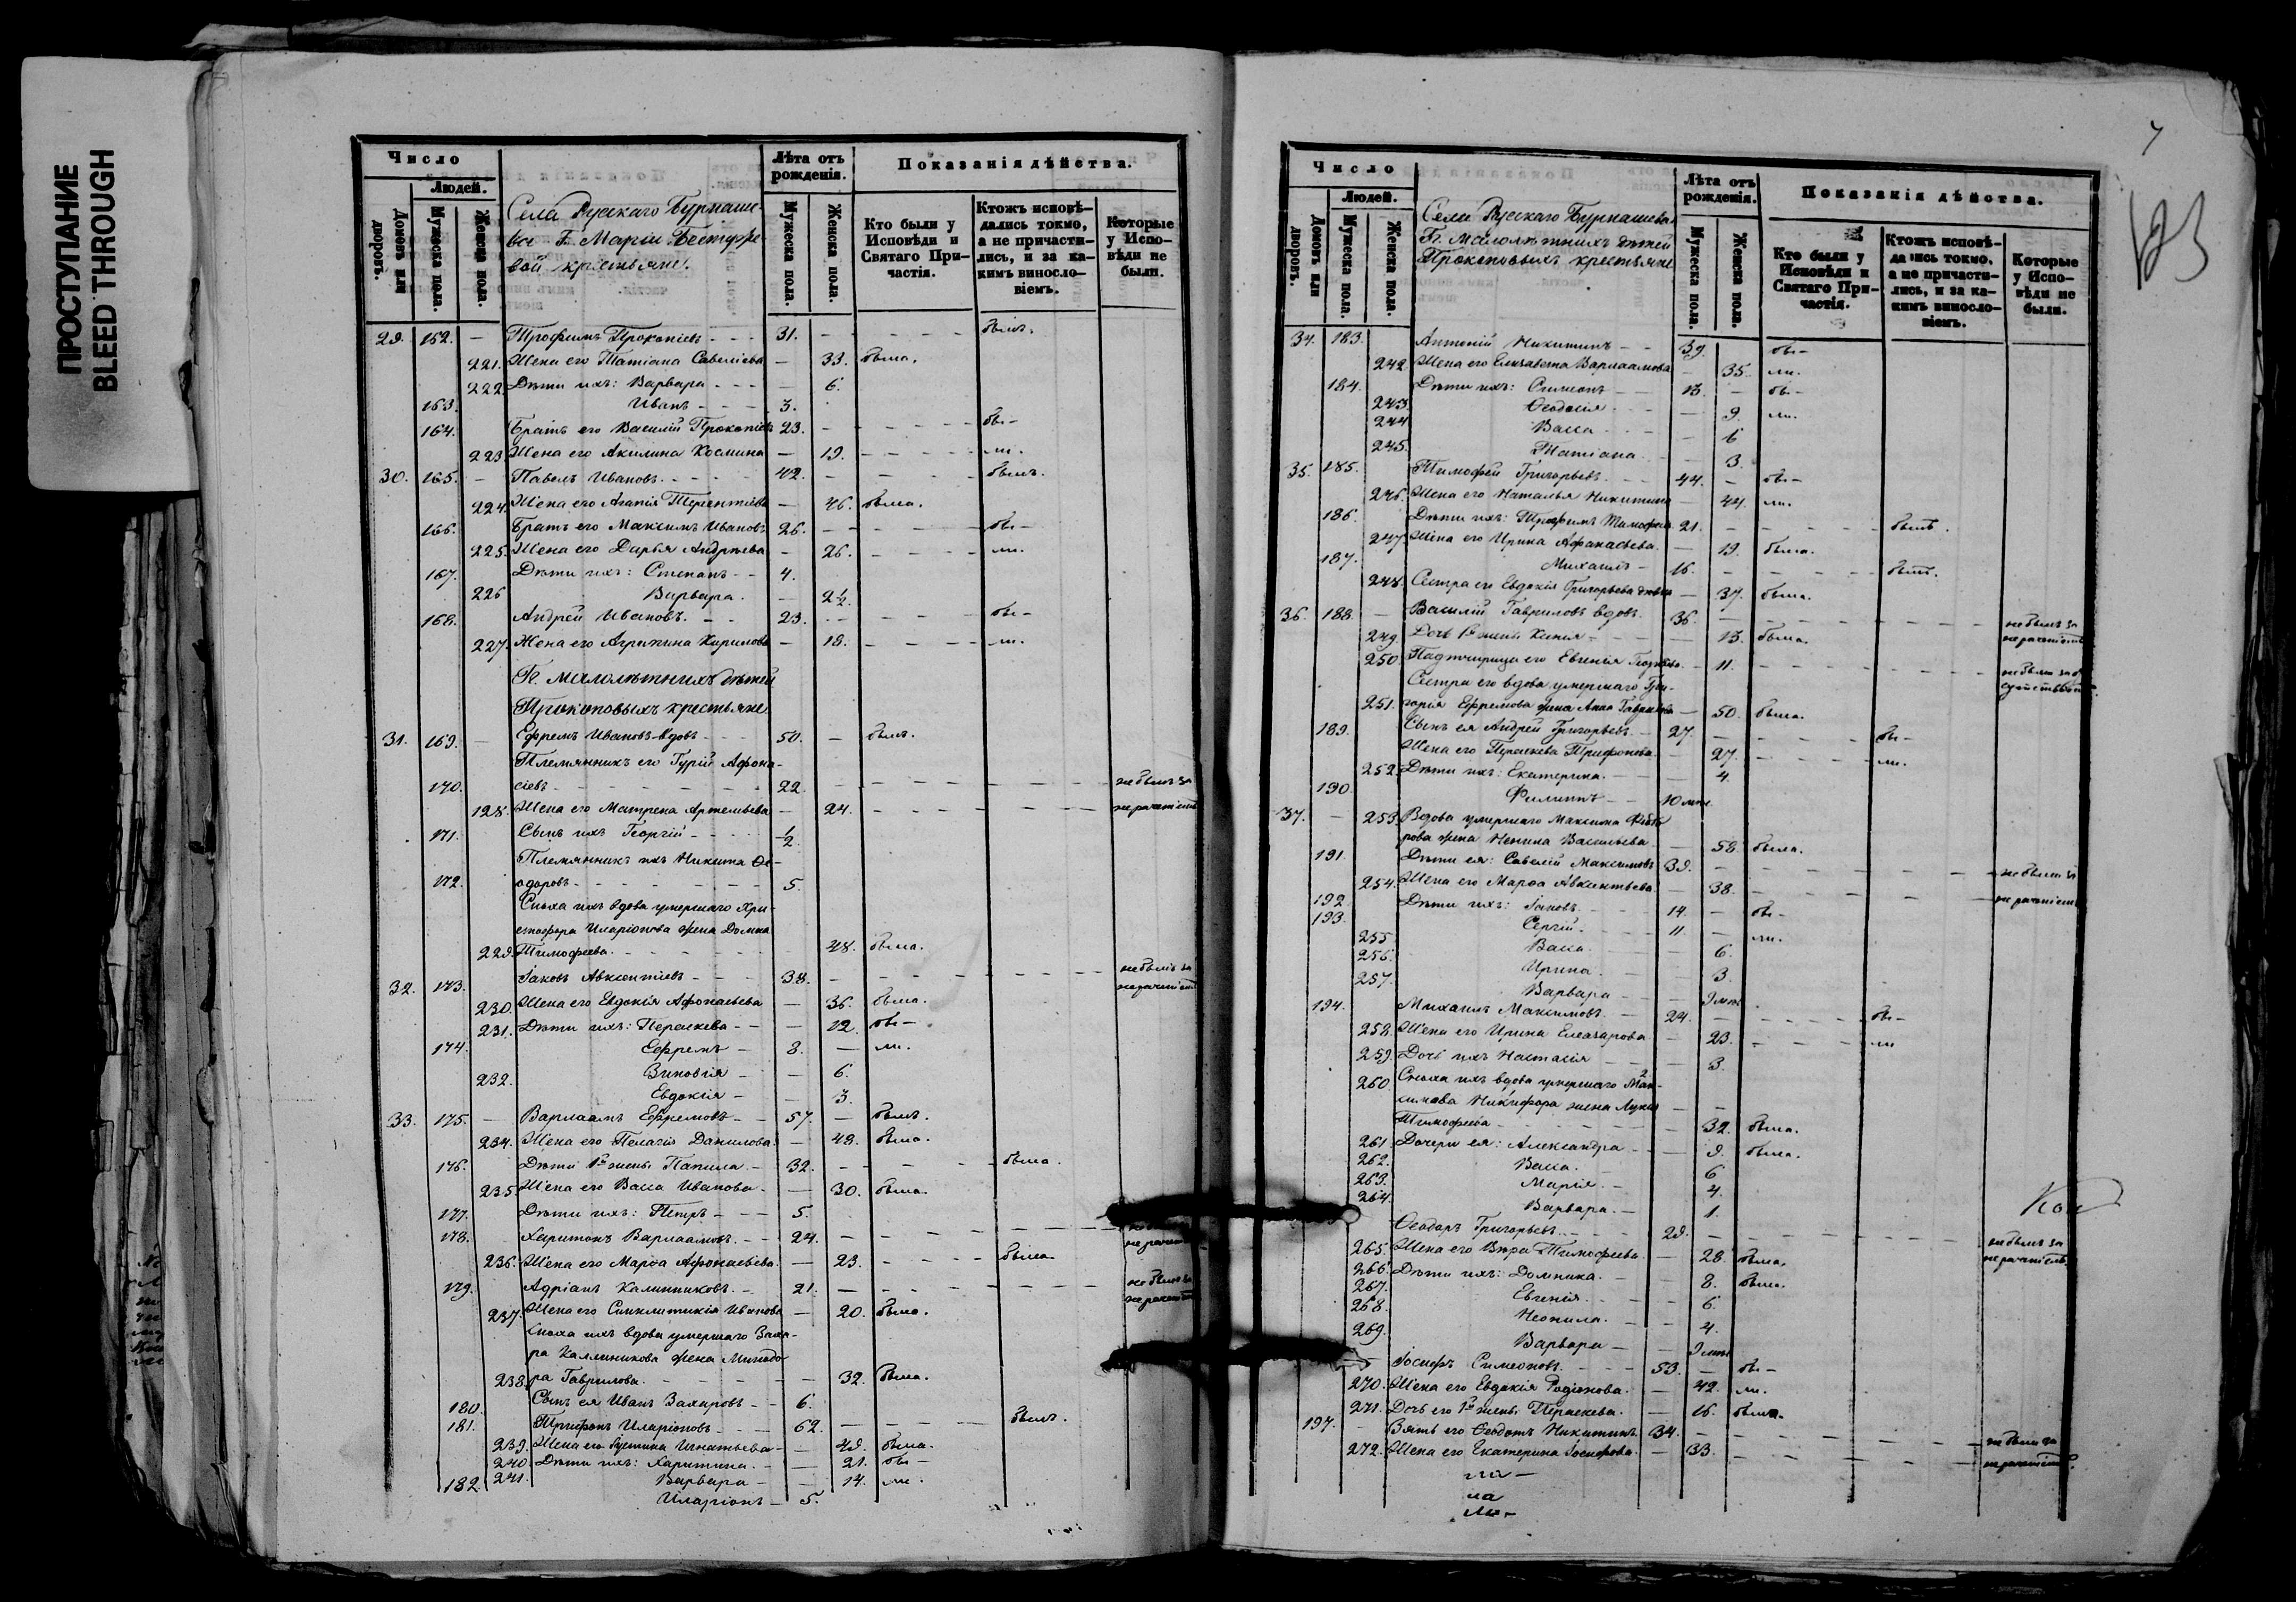 ПРОСТУПАНИЕ
BLEED THROUGH
Число
Людей.
Домовъ или дворовъ.
Мужеска пола.
Женска пола.
Села Русскаго Бурнаше-
ва Г. Маріи Бестуже-
вой крестьяне.
Лѣта отъ рожденія.
Мужеска пола.
Женска пола.
Показанія дѣйства.
Кто были у Исповѣди и Святаго Причастія.
Ктожъ исповѣдались токмо, а не причастились, и за какимъ винословіемъ.
Которые у Исповѣди не были.
29. 162. — Трофимъ Прокопіевъ - - - 31. — былъ.
221. Жена его Татіана Савеліева — 33. была.
222. Дѣти ихъ: Варвара - - - — 6.
163. Иванъ - - - 3.
164. Братъ его Василій Прокопіевъ 23. — бы-
223 Жена его Акилина Космина — 19. — ли.
30. 165. — Павелъ Ивановъ - - - 42. — былъ.
224. Жена его Агапія Терентіева — 46. была.
166. Братъ его Максимъ Ивановъ 26. — бы-
225. Жена его Дарья Андреева — 26. — ли.
167. Дѣти ихъ: Степанъ - - 4.
226 Варвара. — 2½.
168. Андрей Ивановъ. - - 23. — бы-
227. Жена его Агрипина Кирилова — 18. — ли.
Гг. малолѣтнихъ дѣтей
Прокоповыхъ крестьяне
31. 169. — Ефремъ Ивановъ вдовъ - - 50. — былъ.
Племянникъ его Гурій Афона-
170. сіевъ - - - 22. — не былъ за
128. Жена его Матрена Артемьева — 24. — нераченіемъ
171. Сынъ ихъ Георгій - - - ½
Племянникъ ихъ Никита Ѳе-
172. одоровъ - - - 5.
Сноха ихъ вдова умершаго Хри-
стофора Иларіонова жена Домна
229. Тимофеева. - - - 48. была.
32. 173. Іаковъ Авксентіевъ - - - 38. — не былъ за нераченіемъ
230. Жена его Евдокія Афонасьева — 36. была.
231. Дѣти ихъ: Параскева - - — 12. бы-
174. Ефремъ — 8. — ли.
232. Зиновія — — 6.
Евдокія — — 3.
33. 175. — Варлаамъ Ефремовъ - - 57. — былъ.
234. Жена его Пелагія Данилова. — 48. была.
176. Дѣти 1й жены Папила — 32. — была.
235. Жена его Васса Иванова. — 30. была.
177. Дѣти ихъ: Петръ - - - 5.
178. Харитонъ Варлаамовъ. - - 24. —
236. Жена его Марѳа Афонасьева. — 23. — была
179. Адріанъ Калинниковъ. - 21. — не былъ за
237. Жена его Синклитикія Иванова — 20. была.
Сноха ихъ вдова умершаго Заха-
ра Каллиникова жена Минодо-
238. ра Гаврилова. - - - 32. Была.
180. Сынъ ея Иванъ Захаровъ - - 6.
181. Трифонъ Иларіоновъ - - - 62. — былъ.
239. Жена его Іустина Игнатьева — 49. была.
240. Дѣти ихъ: Харитина. - — 21. бы-
241. Варвара — — 14. ли
182. Иларіонъ — 5.
7
123
Число
Людей.
Домовъ или дворовъ.
Мужеска пола.
Женска пола.
Села Русскаго Бурнашева
Гг. малолѣтнихъ дѣтей
Прокоповыхъ крестьяне
Лѣта отъ рожденія.
Мужеска пола.
Женска пола.
Показанія дѣйства.
Кто были у Исповѣди и Святаго Причастія.
Ктожъ исповѣдались токмо, а не причастились, и за какимъ винословіемъ.
Которые у Исповѣди не были.
34. 183. Антоній Никитинъ - - 39. бы-
242 Жена его Елизавета Варлаамова — 35. ли.
184. Дѣти ихъ: Симеонъ — 13. — бы-
243. Ѳеодосія - - — 9. ли.
244 Васса - - — 6
245. Татіана — 3.
35. 185. Тимофей Григорьевъ. - - 44. — бы-
246. Жена его Наталья Никитина — 44. ли.
186. Дѣти ихъ: Трофимъ Тимофеевъ 21. — былъ.
247. Жена его Ирина Афанасьева. — 19. была.
187. Михаилъ — 16. — былъ.
248. Сестра его Евдокія Григорьева дѣвка — 37. была.
36. 188. — Василій Гавриловъ вдовъ. 36. — не былъ за
249. Дочь 1й жены Ксенія — 13. была. нераченіемъ
250. Падчирица его Евгенія Георгіева. — 11. — не была за о
Сестра его вдова умершаго Гри-
251. горія Ефремова жена Анна Гаврилова — 50. была.
189. Сынъ ея Андрей Григорьевъ. — 27. — бы-
Жена его Параскева Трифонова. — 27. — ли.
252. Дѣти ихъ: Екатерина. — — 4.
190. Филиппъ — 10 мѣс.
37. — 253. Вдова умершаго Максима Ѳедо-
рова жена Ненила Васильева — 58. была.
191. Дѣти ея: Савелій Максимовъ 39. — не были за
254. Жена его Марѳа Авксентьева. — 38. — нераченіемъ
192. Дѣти ихъ: Іаковъ - - - 14. — бы-
193. Сергій. - - - 11. — ли.
255. Васса. - - 6.
256. Ирина. - - 3.
257. Варвара — 9 мѣс
194. Михаилъ Максимовъ. - - 24. — бы-
258. Жена его Ирина Елеазарова. — 23. — ли
259. Дочь ихъ Настасія — 3.
260 Сноха ихъ вдова умершаго Мак-
симова Никифора жена Лукія
Тимофеева - - - 32. была.
261. Дочери ея: Александра - - 9. была.
262. Васса. - 6
263. Марія. - 4.
264. Варвара. - 1.
Коп
Ѳеодоръ Григорьевъ. - - 29. — не былъ за
265. Жена его Вѣра Тимофеева. — 28. была. нераченіемъ
266. Дѣти ихъ: Домника. - — 8. была.
267. Евгенія. - - 6.
268. Неонила. - - 4.
269. Варвара — 9 мѣс
Іосифъ Симеоновъ. - - - 53. — бы-
270. Жена его Евдокія Родіонова. — 42. ли.
271. Дочь его 1й жены Параскева. — 16. была.
197. Зять его Ѳеодотъ Никитинъ. 34. — не были за
272. Жена его Екатерина Іосифова. — 33. — нераченіемъ.